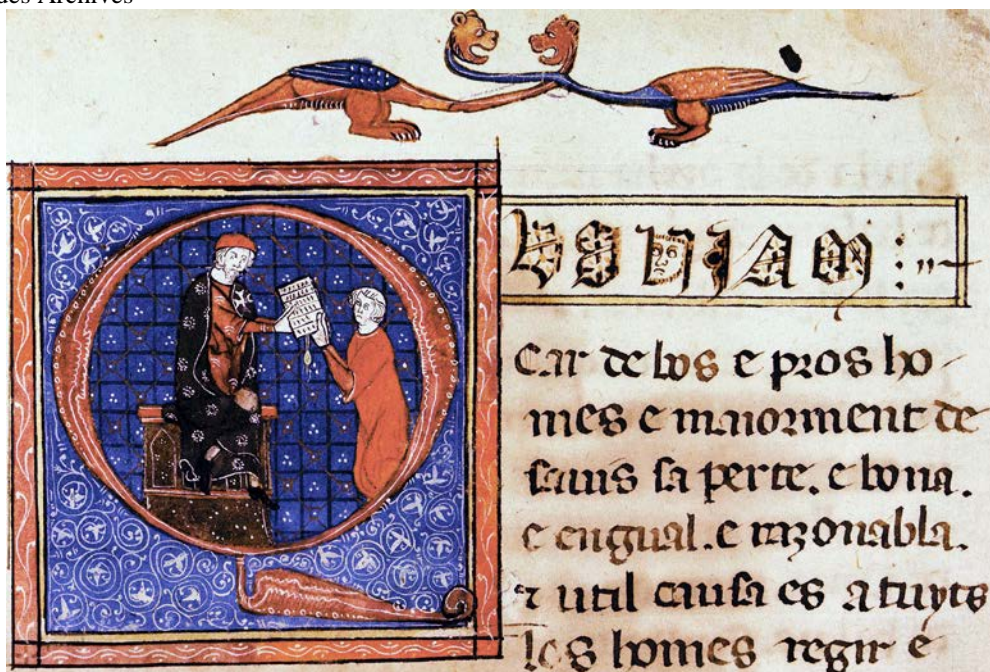 des Archives
QVONIAM :
Car de bos e pros ho
mes e maiorment de
sauis sa perte. e bona.
e engual. e razonabla.
⁊ util causa es a tuyts
los homes regir e